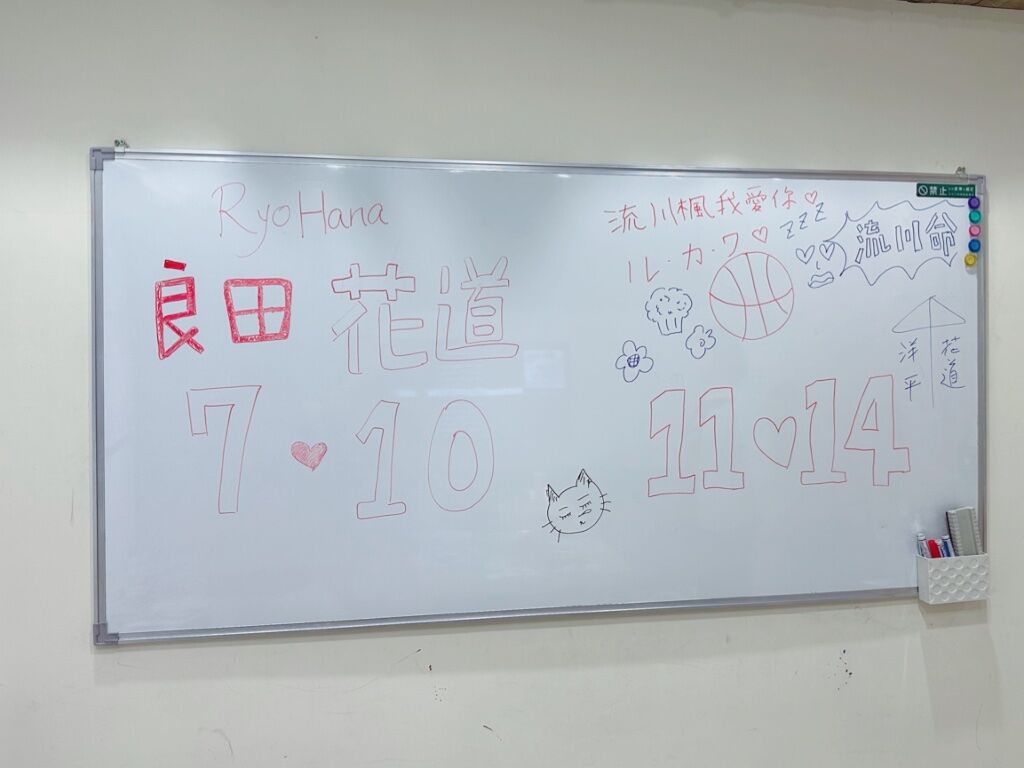 RyoHana
良田 花道
7 10
流川楓我愛你
ル・カ・ワ
zzz
流川命
洋平 花道
11 14
禁止